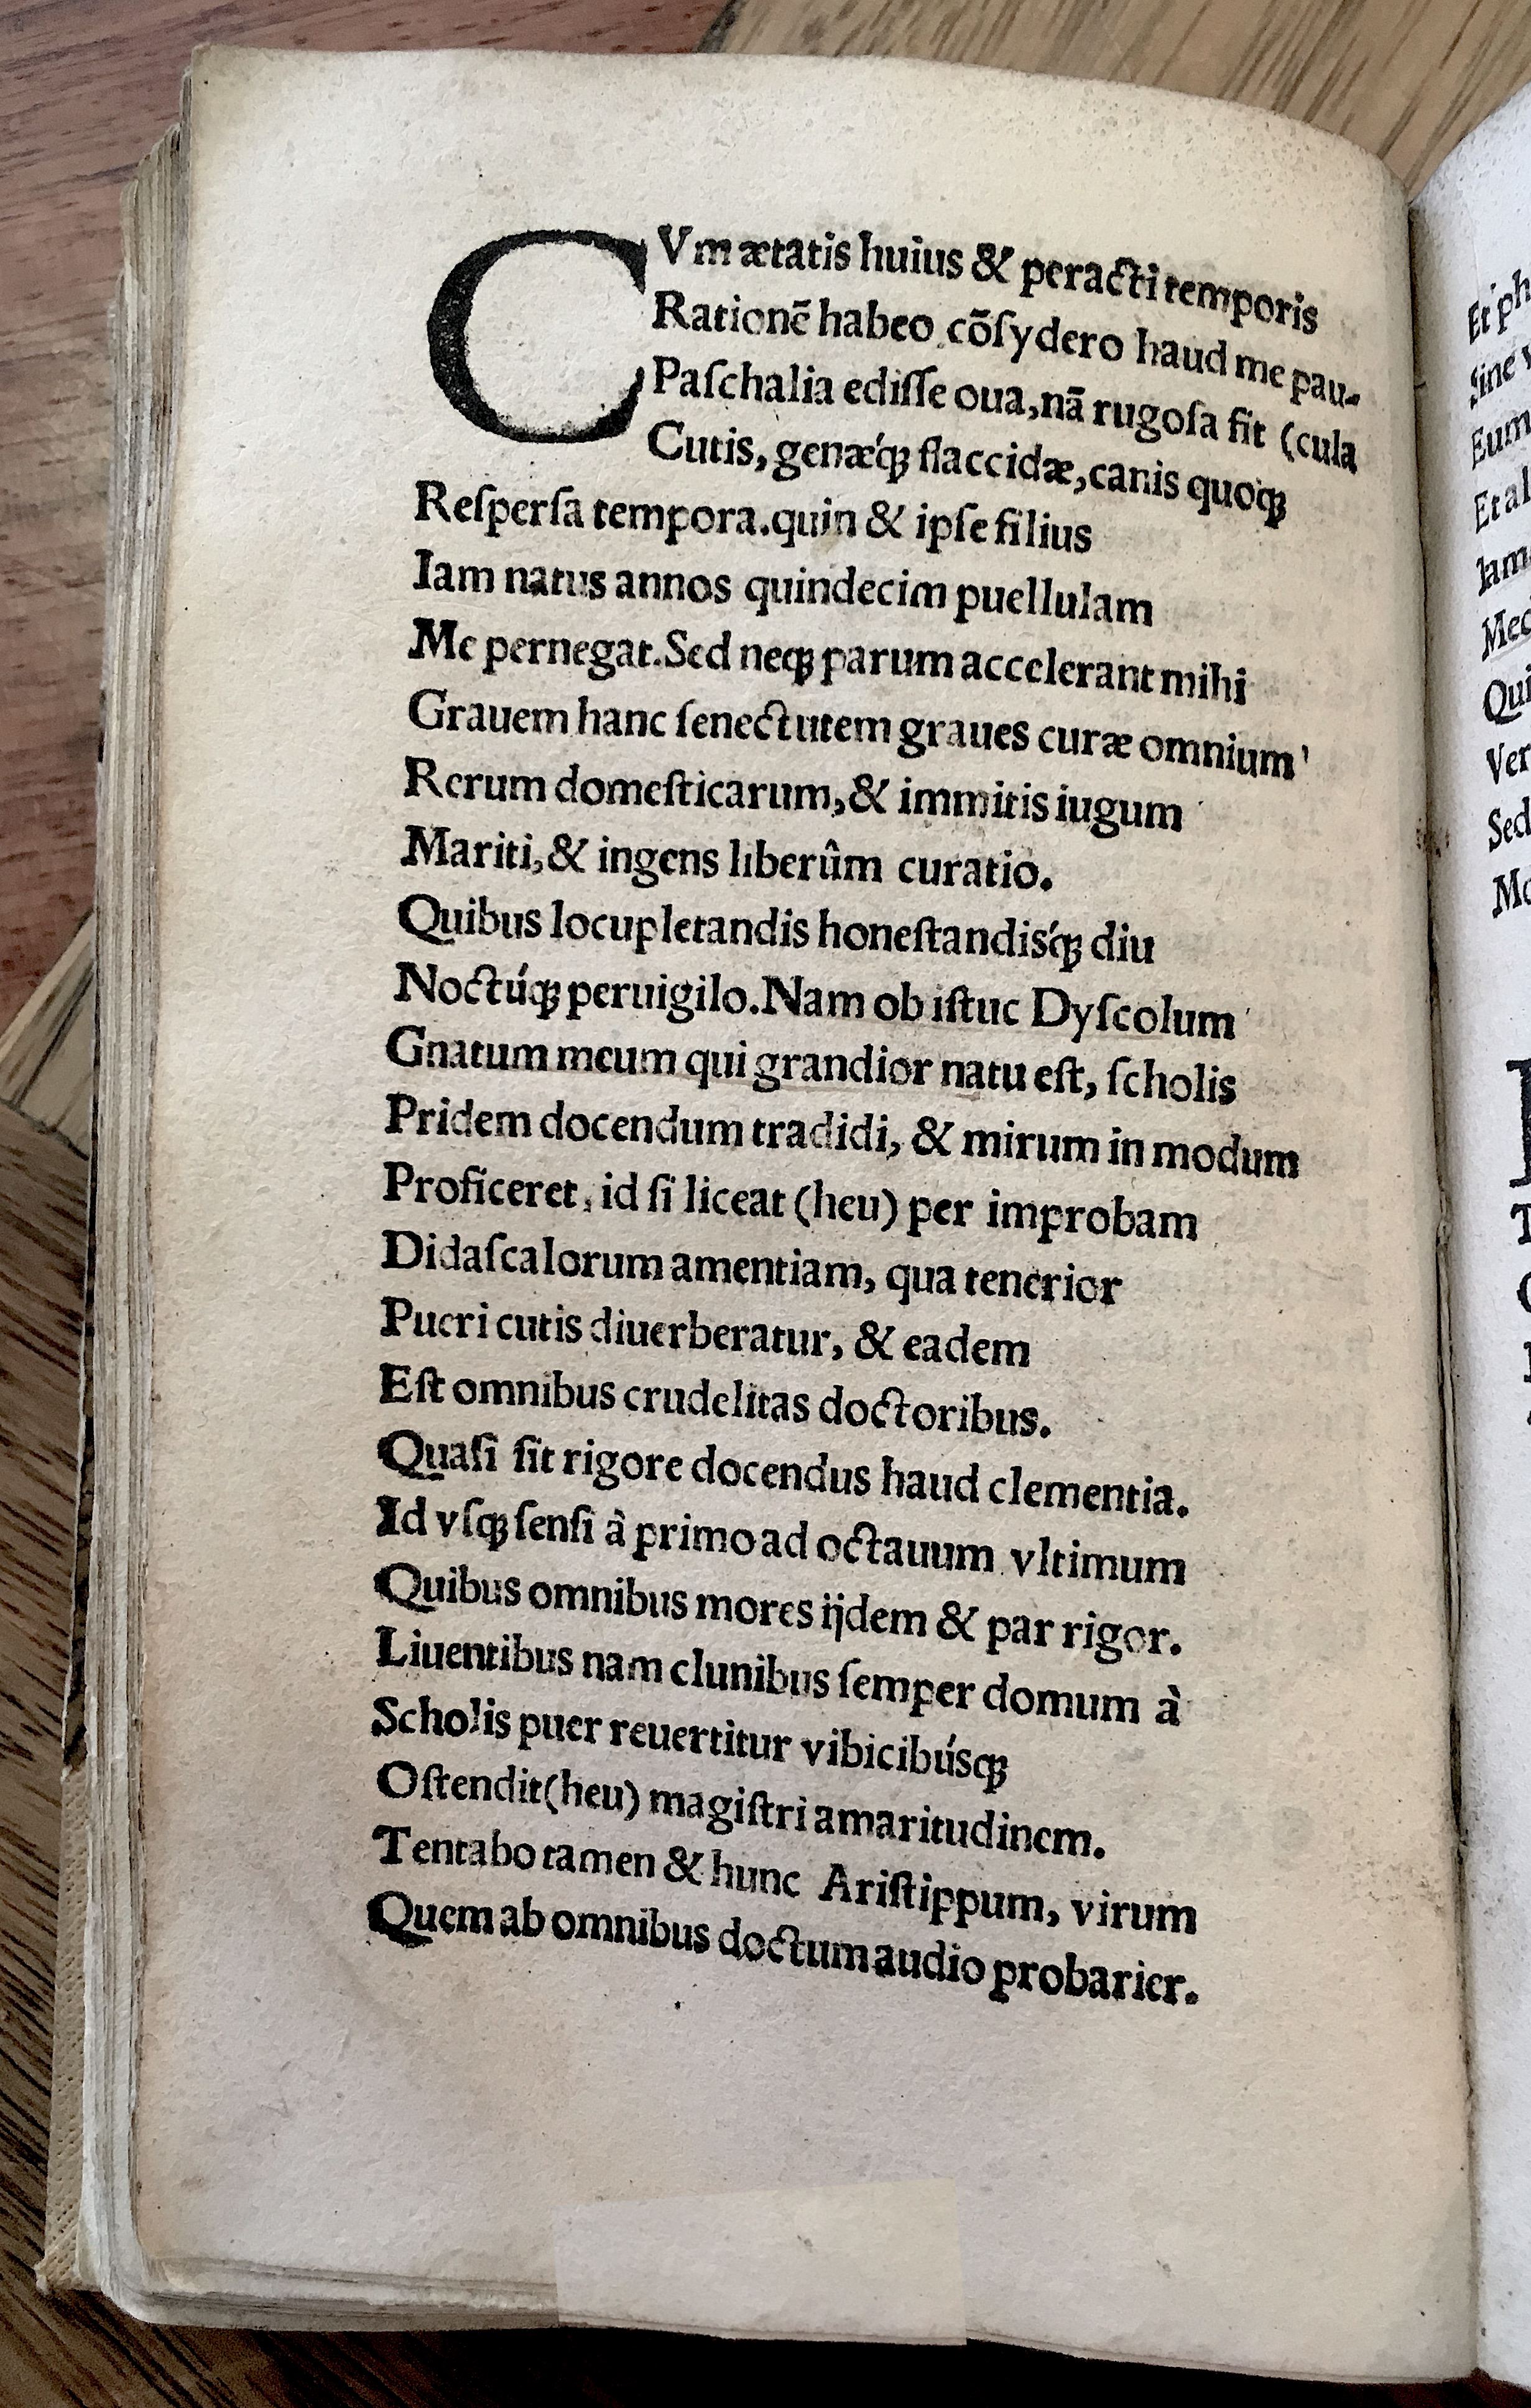 CVm ætatis huius & peracti temporis
Rationē habeo cōſydero haud me pau-
Paſchalia ediſſe oua, nā rugoſa fit (cula
Cutis, genæq́ꝫ flaccidæ, canis quoqꝫ
Reſperſa tempora. quin & ipſe filius
Iam natus annos quindecim puellulam
Me pernegat. Sed neqꝫ parum accelerant mihi
Grauem hanc ſenectutem graues curæ omnium
Rerum domeſticarum, & immitis iugum
Mariti, & ingens liberûm curatio.
Quibus locupletandis honeſtandisq́ꝫ diu
Noctúqꝫ peruigilo. Nam ob iſtuc Dyſcolum
Gnatum meum qui grandior natu eſt, ſcholis
Pridem docendum tradidi, & mirum in modum
Proficeret, id ſi liceat (heu) per improbam
Didaſcalorum amentiam, qua tenerior
Pueri cutis diuerberatur, & eadem
Eſt omnibus crudelitas doctoribus.
Quaſi ſit rigore docendus haud clementia.
Id vſqꝫ ſenſi à primo ad octauum vltimum
Quibus omnibus mores ijdem & par rigor.
Liuentibus nam clunibus ſemper domum à
Scholis puer reuertitur vibicibúsqꝫ
Oſtendit (heu) magiſtri amaritudinem.
Tentabo tamen & hunc Ariſtippum, virum
Quem ab omnibus doctum audio probarier.
Et
ſine
Eum
Et al
Iam
Med
Qui
Ver
Sed